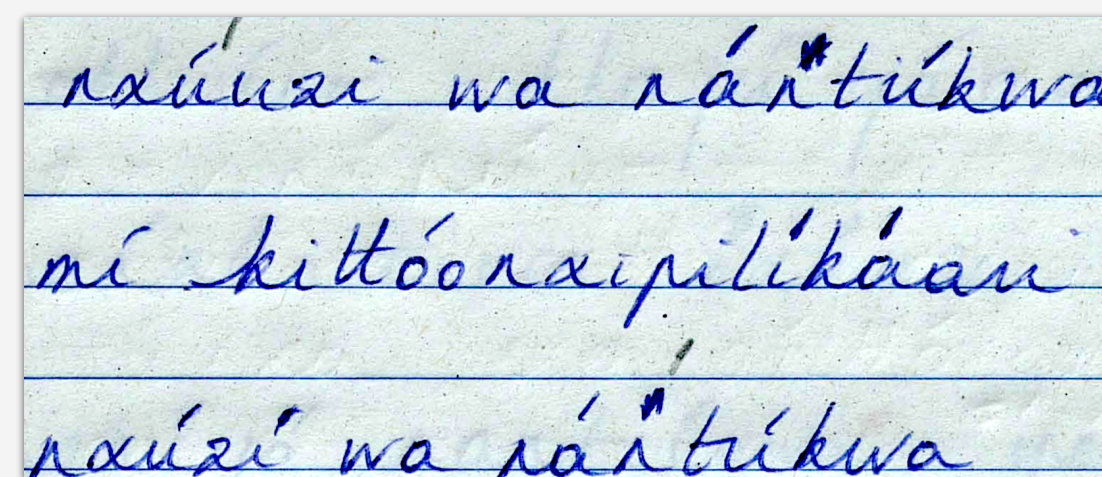 nxúuzi wa nántúkwa
mí kittóonxipilíkáani
nxúzí wa nántúkwa